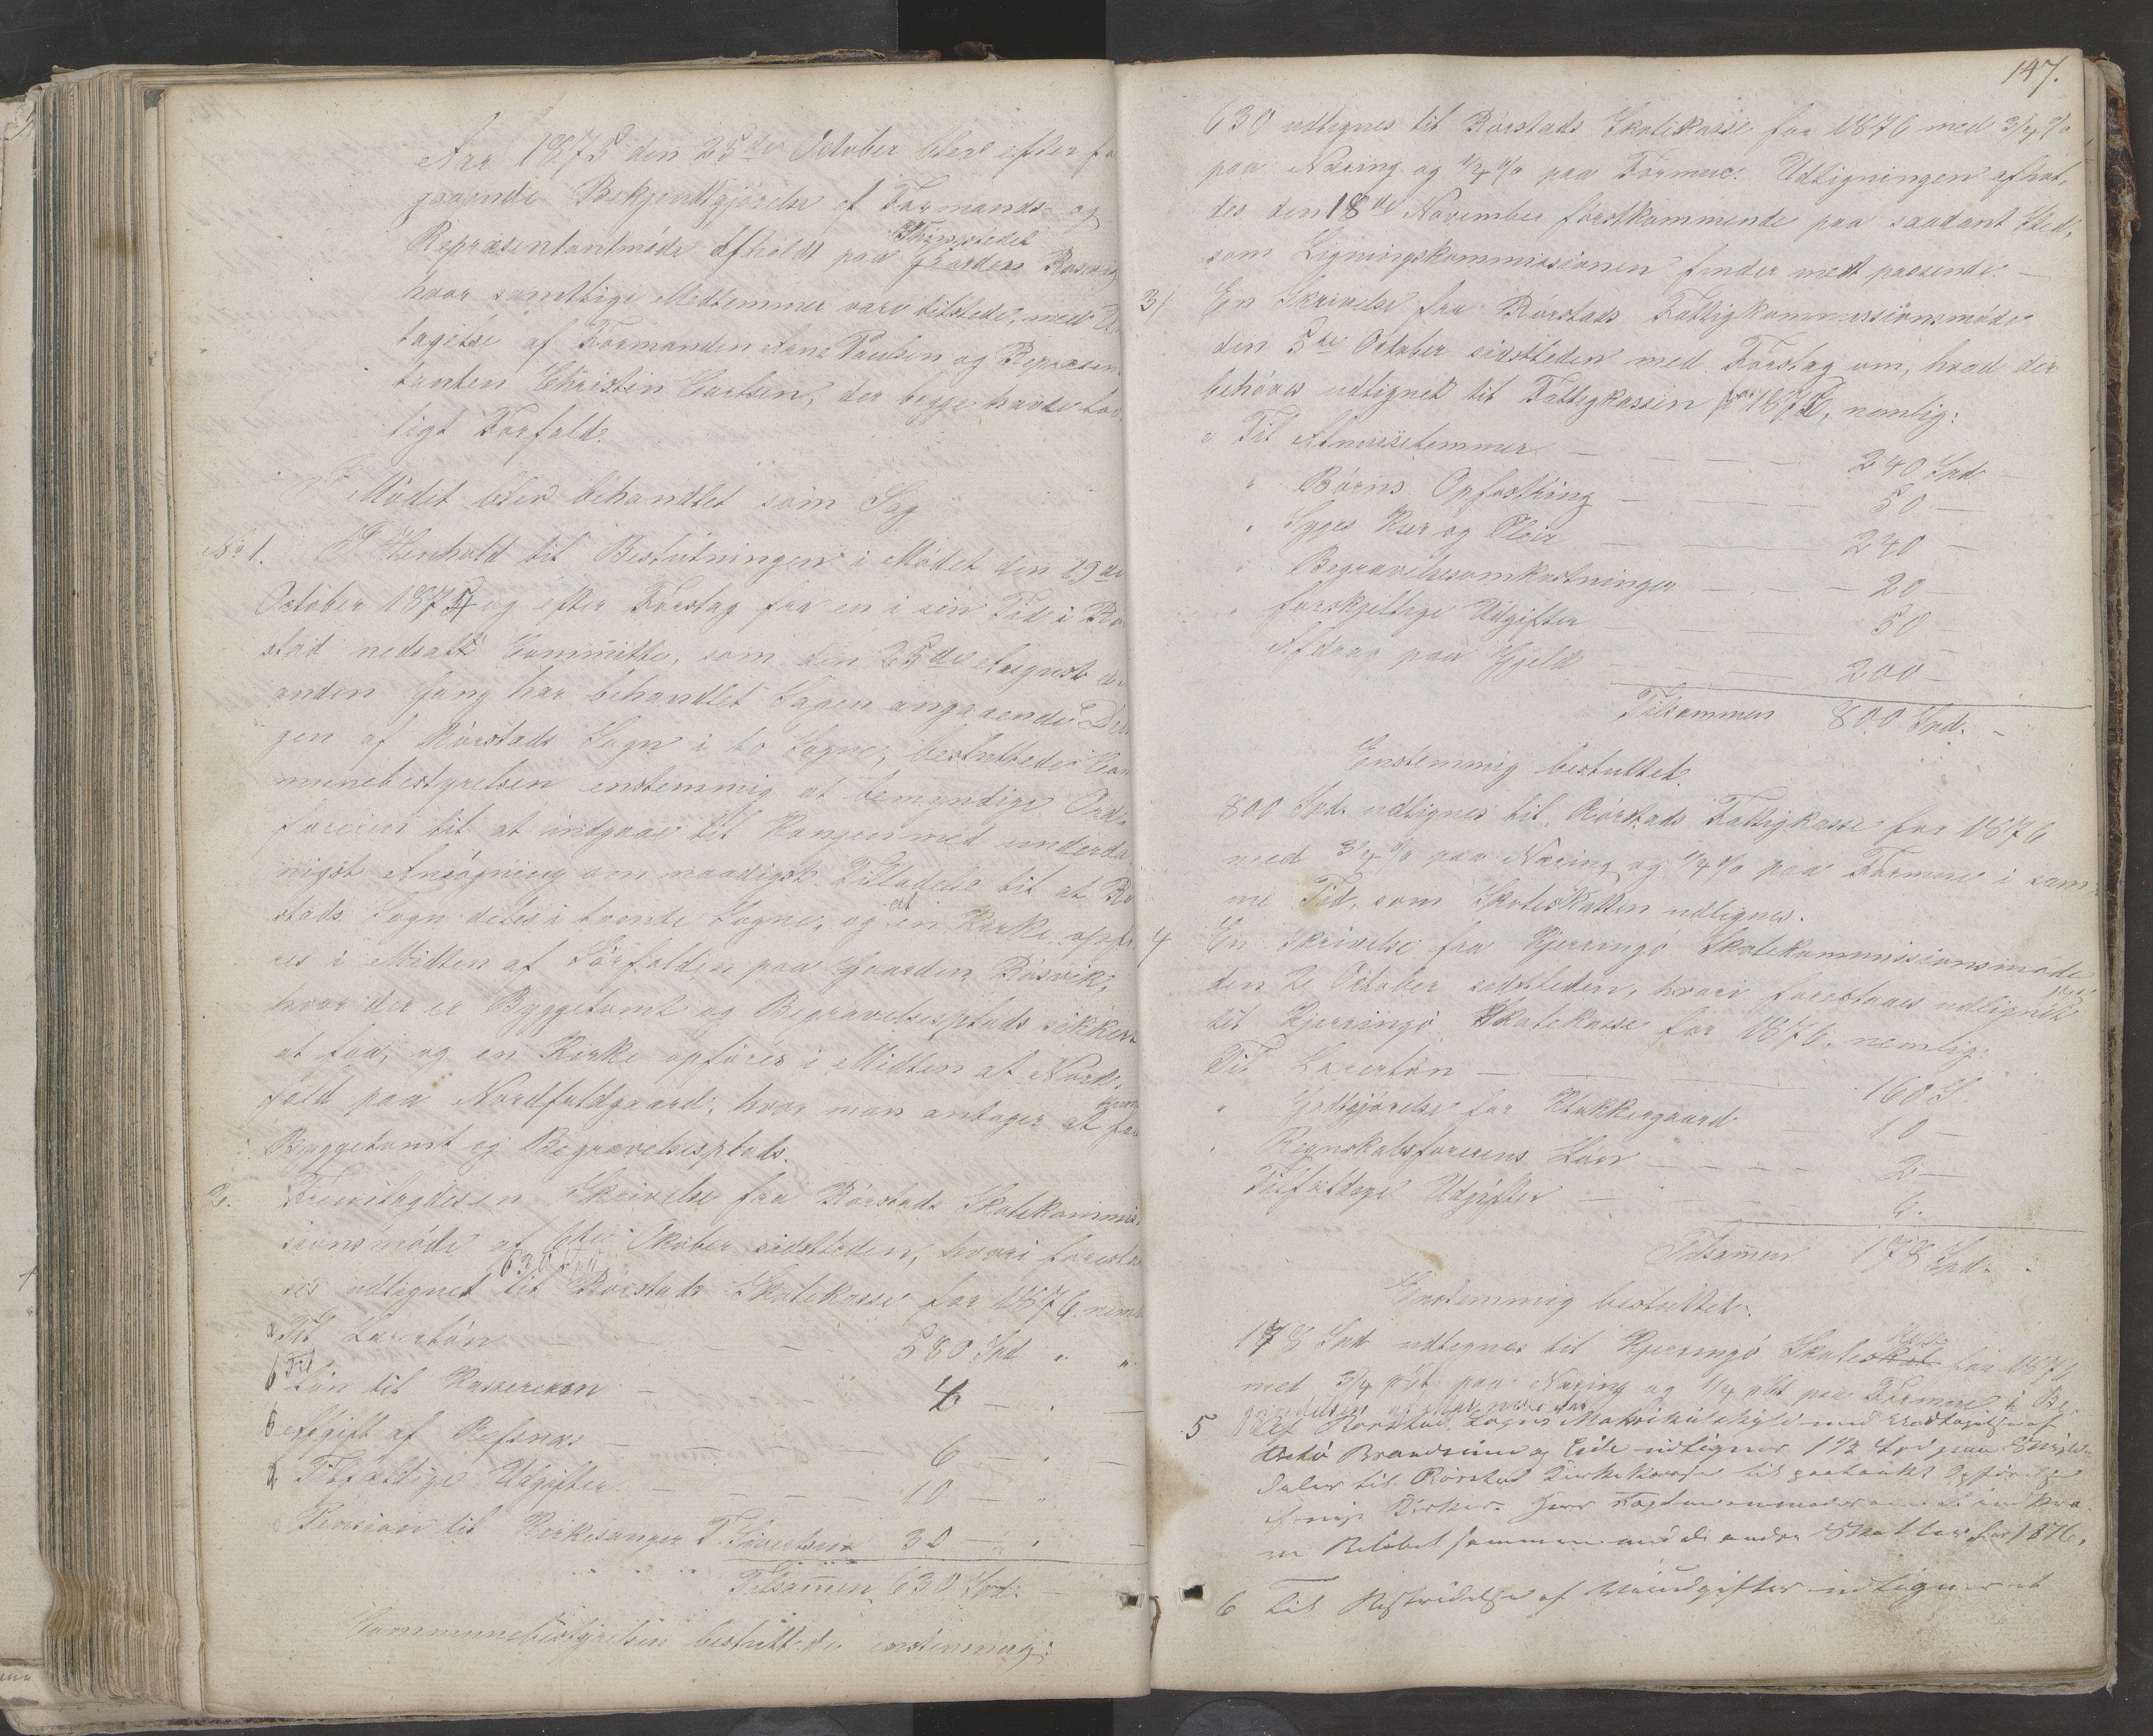 Aar 1875 den 25de October blev efter fo
gaaende Bekjendtgjørelse af Formands- og
Repræsentantmøde afholdt paa Thingstedet Gaarden Rosvig
hvor samtlige Medlemmer vare tilstede, med Und
tagelse af Formanden Arne Paulsen og Repræsen
tanten Christin Carlsen, der begge havde lov
ligt Forfald.
I Mødet blev behandlet som Sag
No 1. I Henhold til Beslutningen i Mødet den 29de
October 1874 og efter Forslag fra en i sin Tid i Rør
stad nedsatte Committe, som den 25de August
anden Gang har behandlet Sagen angaaende De
gen af Rørstads Sogn i to Sogne, besluttede Com
munebestyrelsen enstemmig at bemyndige Ord-
føreren til at indgaae til Kongen med underda
nigst Ansøgning om naadigst Tilladelse til at Rø
stads Sogn deles i tvende Sogne, og at en Kirke opfø
res i Midten af Sørfolden paa Gaarden Røsvik,
hvor der er Byggetomt og Begravelsesplads sikkert
at faa, og en Kirke opføres i Midten af Nord-
fold paa Nordfoldgaard, hvor man antager at faa
Byggetomt og Begravelsesplads.
2. Fremlagdes en Skrivelse fra Rørstads Skolekommis
sionsmøde af 6te Oktober sidstleden, hvori foresla
es udlignet 630 Spd til Rørstads Skolekasse for 1876 neml
a Til Lærerløn — 580 Spd " "
b Til Løn til Kassereren — 4 —
c Afgift af Refsnæs — 6 —
d Tilfældige Udgifter — 10 —
Pension til Kirkesanger T. Sivertsen 30 —
Tilsammen 630 Spd.
Communebestyrelsen besluttede enstemmig:
147.
630 udlignes til Rørstads Skolekasse for 1876 med 3/4 %
paa Næring og 1/4 % paa Formue. Udligningen afhol-
des den 18de November førstkommende paa saadant Sted,
som Ligningskommissionen finder mest passende. —
3) En Skrivelse fra Rørstads Fattigkommissionsmøde
den 5te October sidstleden med Forslag om, hvad der
behøves udlignet til Fattigkassen for 1876, nemlig:
a Til Almisselemmer — 240 Spd
" Børns Opfostring — 50 —
" Syges Kur og Pleie — 240 —
" Begravelsesomkostninger — 20 —
" forskjellige Udgifter — 50 —
Afdrag paa Gjeld — 200 —
Tilsammen 800 Spd. —
Enstemmig besluttet.
800 Spd. udlignes til Rørstads Fattigkasse for 1876
med 3/4 % paa Næring og 1/4 % paa Formue i sam-
me Tid, som Skoleskatten udlignes.
4 En Skrivelse fra Kjerringø Skolekommissionsmøde
den 2 October sidstleden, hvori foreslaaes udlignet
til Kjerringø Skolekasse for 1876, nemlig:
Til Lærerløn — 160 S.
" Godtgjørelse for Klokkergaard — 10 —
" Regnskabsførerens Løn — 2 —
Tilfældige Udgifter — 6.
Tilsammen 178 Spd. .
Enstemmig besluttet.
178 Spd udlignes til Kjerringø Skoleskat for 1876
med 3/4 pCt paa Næring og 1/4 pCt paa Formue i Be-
5 Paa Rørstad Sogns Matrikulskyld med Undtagelse af
Brandsund og Eide udlignes 1 1/2 Spd paa Skyld-
daler til Rørstad Kirkekasse til paatænkt Opførelse
af nye Kirker. Herr Fogden anmodes om at indkræ-
ve Beløbet sammen med de andre Skatter for 1876.
6 Til Bestridelse af Udgifter udlignes et